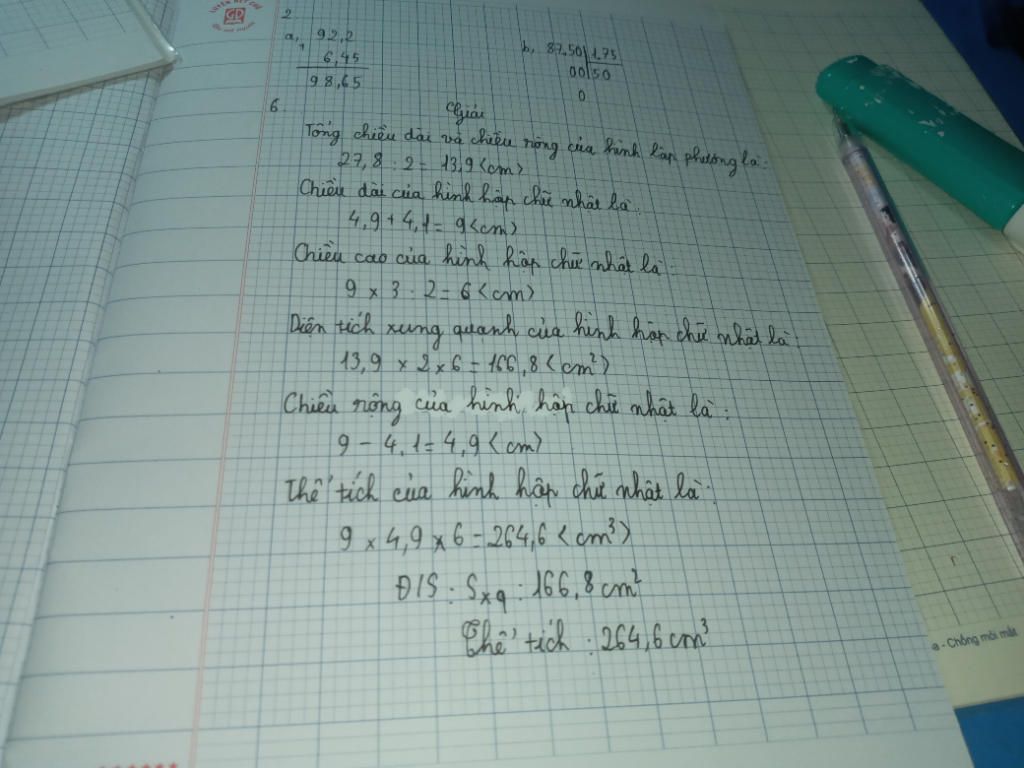 LUYỆN NÉT CHỮ
2.
a, 92,2
+
6,45
98,65
b, 87,50 1,75
00 50
0
6. Giải
Tổng chiều dài và chiều rộng của hình lập phương là:
27,8 : 2 = 13,9 (cm)
Chiều dài của hình hộp chữ nhật là:
4,9 + 4,1 = 9 (cm)
Chiều cao của hình hộp chữ nhật là:
9 x 3 : 2 = 6 (cm)
Diện tích xung quanh của hình hộp chữ nhật là:
13,9 x 2 x 6 = 166,8 (cm²)
Chiều rộng của hình hộp chữ nhật là:
9 - 4,1 = 4,9 (cm)
Thể tích của hình hộp chữ nhật là:
9 x 4,9 x 6 = 264,6 (cm³)
Đ/S: Sxq: 166,8 cm²
Thể tích: 264,6 cm³
a - Chống mỏi mắt